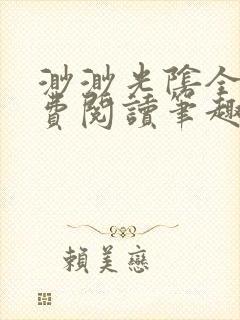 渺渺光陰全
費閱讀筆趣
賴美戀